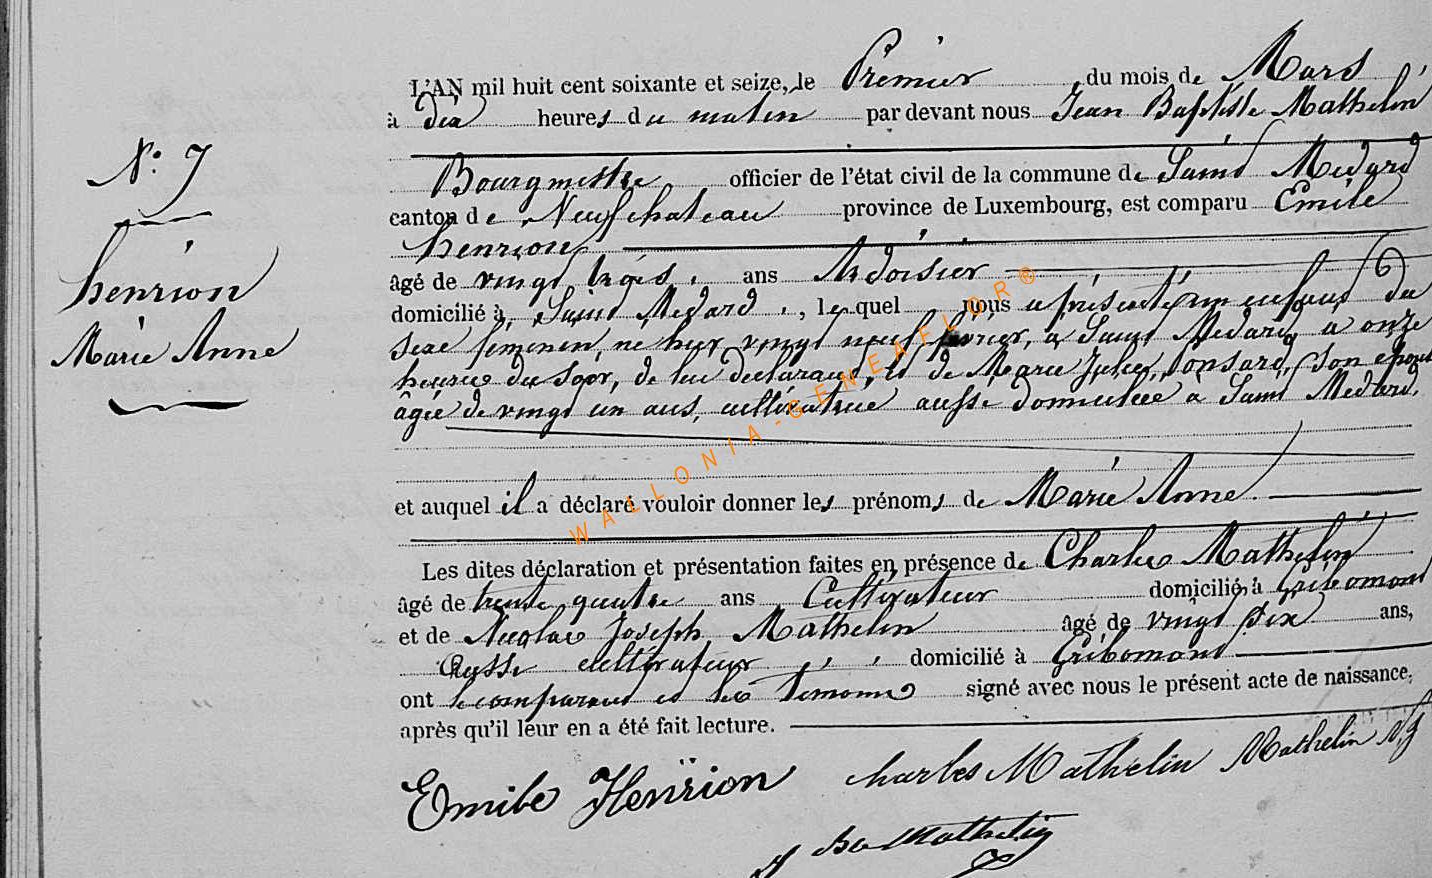 L'AN mil huit cent soixante et seize, le Premier du mois de Mars
à dix heures du matin par devant nous Jean Baptiste Mathelin
N° 7
Bourgmestre officier de l'état civil de la commune de Saint Médard
canton de Neufchateau province de Luxembourg, est comparu Emile
henrion
âgé de vingt trois ans Ardoisier
domicilié à Saint Médard, lequel nous a présenté un enfant du
henrion
Marie Anne
sexe féminin, né hier vingt neuf février, à Saint Médard à onze
heures du soir, de lui déclarant, et de Marie Julie Ponsard, son épouse
âgée de vingt un ans, cultivatrice aussi domiciliée à Saint Médard.
et auquel il a déclaré vouloir donner les prénoms de Marie Anne.
Les dites déclaration et présentation faites en présence de Charles Mathelin
âgé de trente quatre ans Cultivateur domicilié à Gribomont
et de Nicolas Joseph Mathelin âgé de vingt six ans,
Aussi cultivateur domicilié à Gribomont
ont le comparant et les témoins signé avec nous le présent acte de naissance,
après qu'il leur en a été fait lecture.
Emile Henrion Charles Mathelin Mathelin N. J
J Bte Mathelin
WALLONIA-GENEAFLOR®